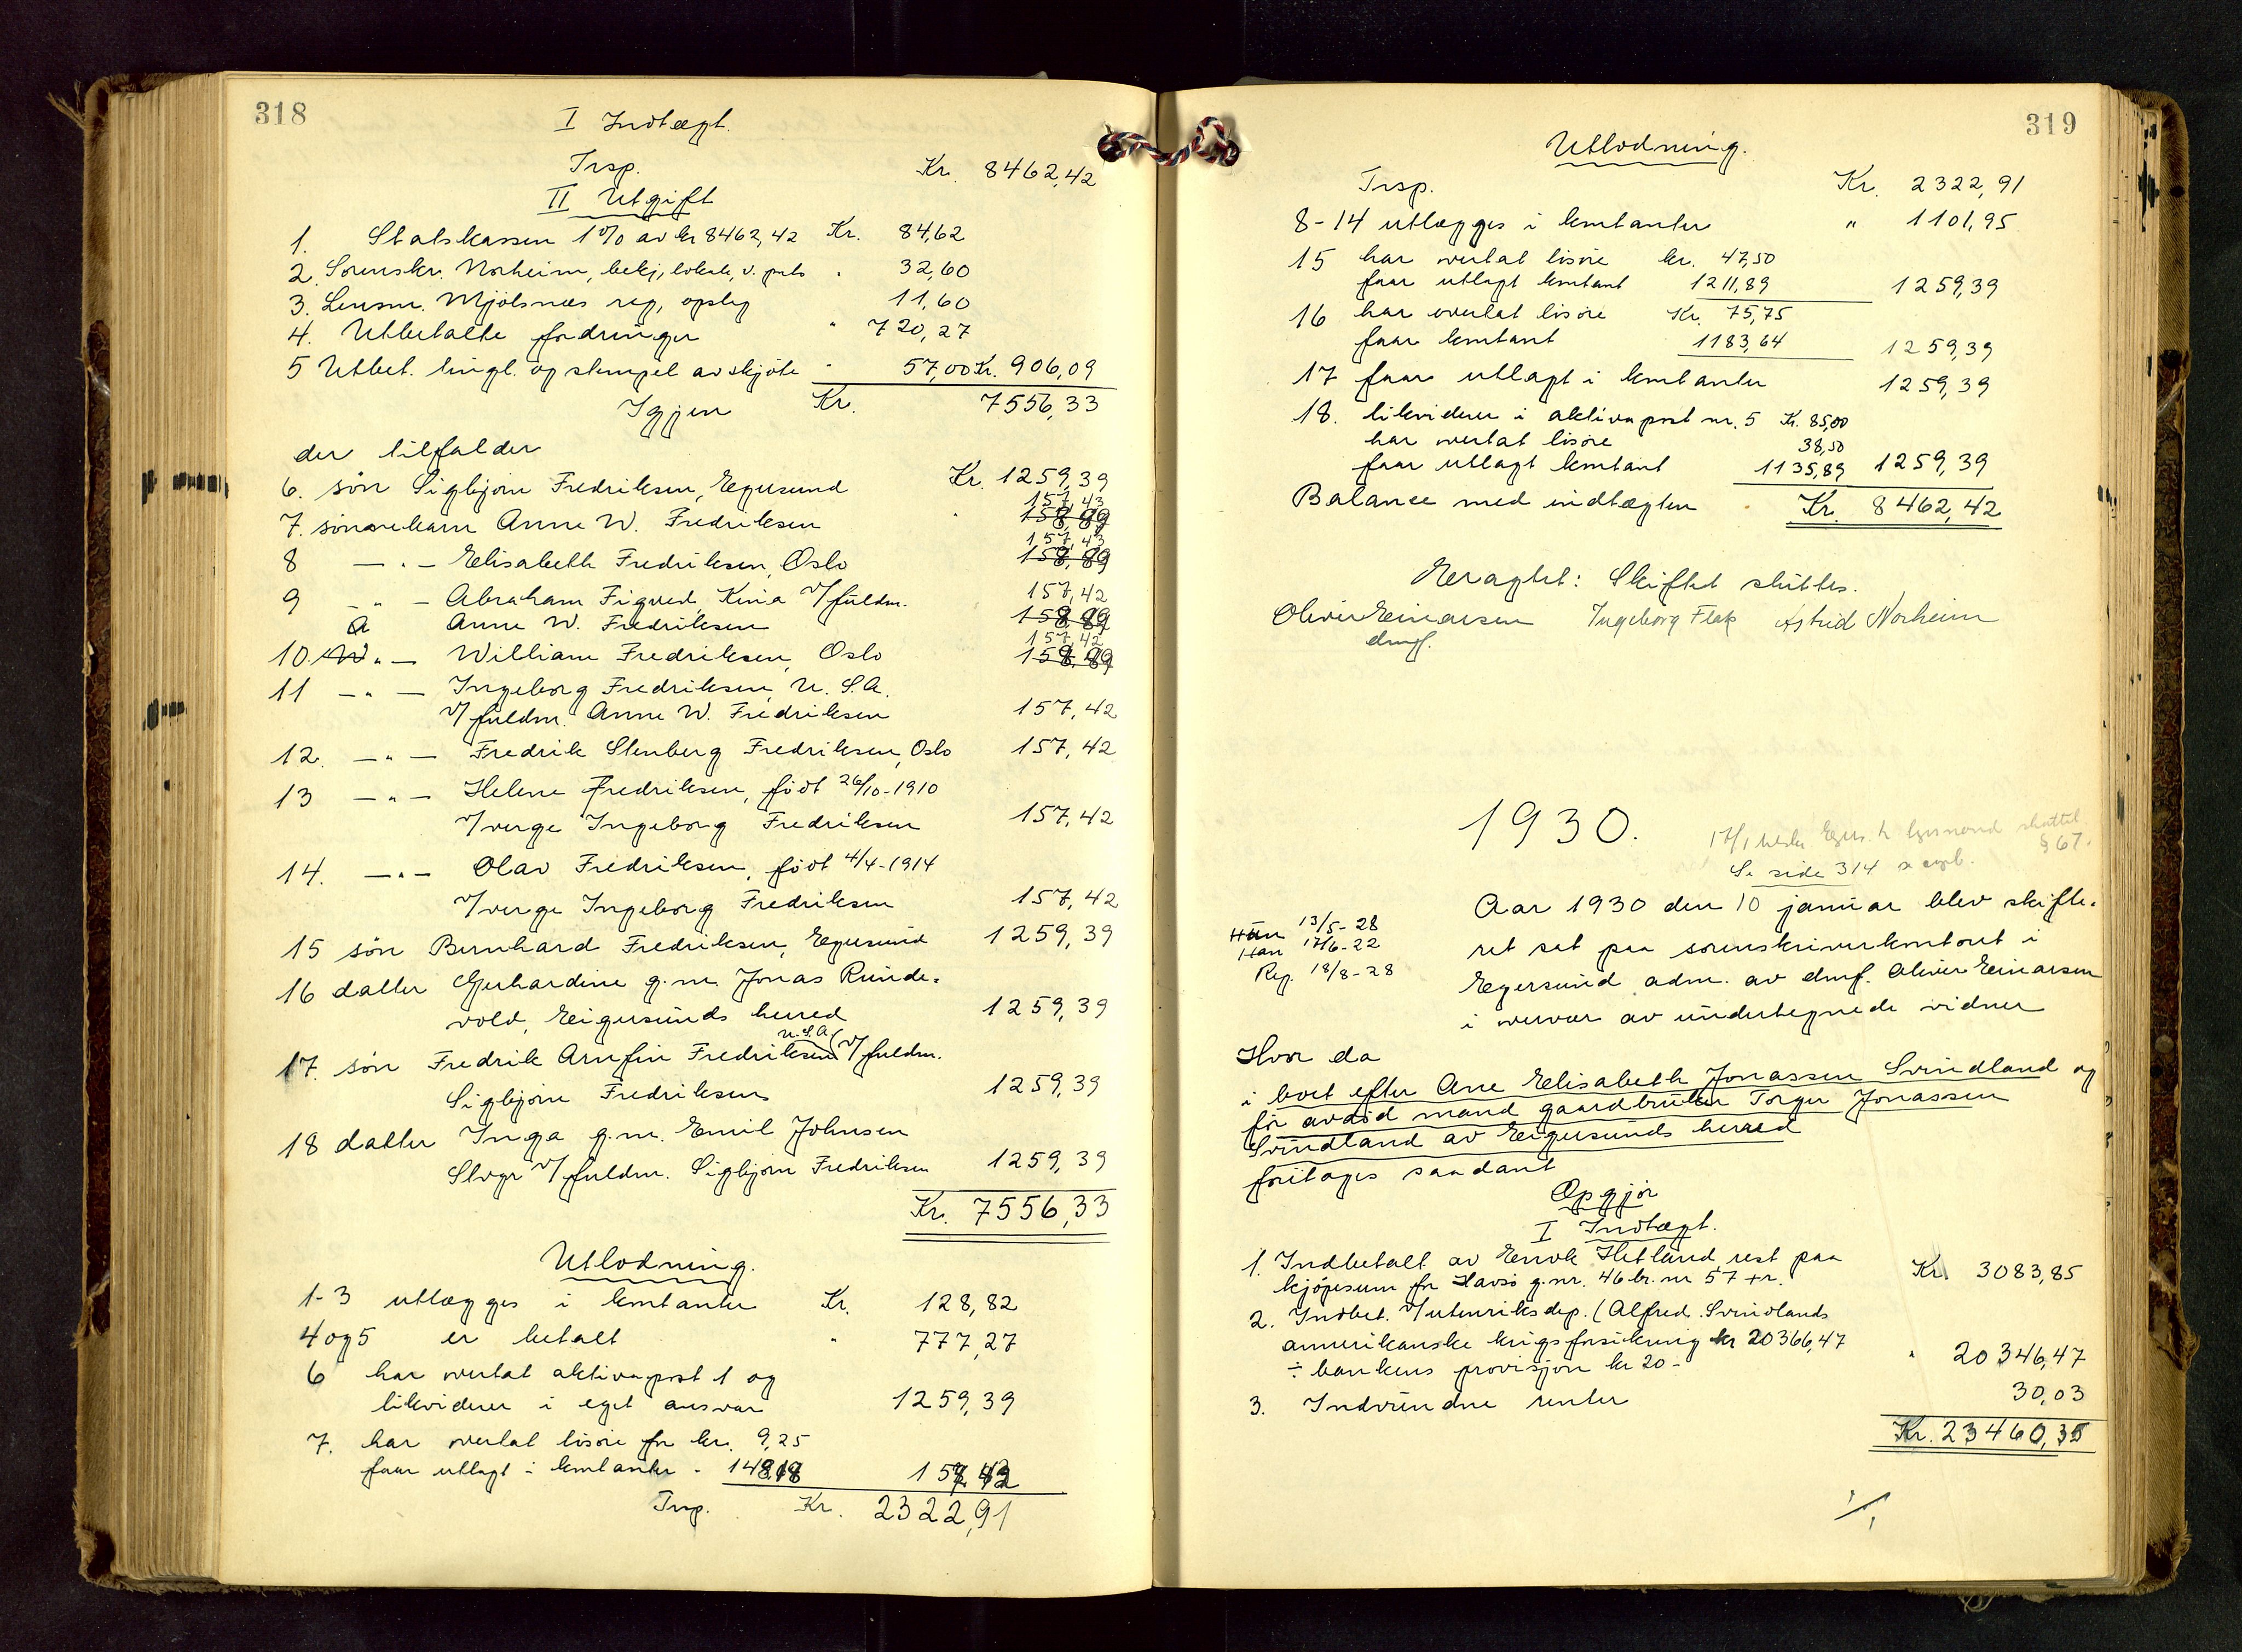 318
I Indtægt.
Trsp. Kr. 8462,42
II Utgift
1. Statskassen 1% av kr 8462,42 Kr. 84,62
2. Sorenskr. Norheim, bekj, lokale, v. prts " 32,60
3. Lensm. Mjølsnes reg, opslg 11,60
4. Utbetalte fordringer " 720,27
5 Utbet. tingl. og stempel av skjøte " 57,00 Kr. 906,09
Igjen Kr. 7556,33
der tilfalder
6. søn Sigbjørn Fredriksen, Egersund Kr. 1259,39
157,43
7. sønnebarn Anne W. Fredriksen " 158,89
157,43
8 — " — Elisabeth Fredriksen, Oslo 158,89
9 — " — Abraham Figved, Kina v/fuldm. 157,42
Anne W. Fredriksen 158,89
157,42
10. — " — William Fredriksen, Oslo 158,89
11 — " — Ingeborg Fredriksen, U. S. A.
v/fuldm. Anne W. Fredriksen 157,42
12. — " — Fredrik Stenberg Fredriksen, Oslo 157,42
13 — " — Helene Fredriksen, født 26/10-1910
v/verge Ingeborg Fredriksen 157,42
14. — " — Olav Fredriksen, født 4/4-1914
v/verge Ingeborg Fredriksen 157,42
15 søn Bernhard Fredriksen, Egersund 1259,39
16 datter Gjerhardine g.m. Jonas Runde-
vold, Eigersunds herred 1259,39
U.S.A
17. søn Fredrik Arnfin Fredriksen v/fuldm.
Sigbjørn Fredriksen 1259,39
18 datter Inga g.m. Emil Johnsen
Stvgr v/fuldm. Sigbjørn Fredriksen 1259,39
Kr. 7556,33
Utlodning.
1-3 utlægges i kontanter Kr. 128,82
4 og 5 er betalt " 777,27
6 har overtat aktivapost 1 og
likviderer i eget ansvar 1259,39
7. har overtat løsøre for kr. 9,25
faar utlagt i kontanter - 148,18 157,43
Trsp. Kr. 2322,91
319
Utlodning.
Trsp. Kr. 2322,91
8-14 utlægges i kontanter " 1101,95
15 har overtat løsøre kr. 47,50
faar utlagt kontant 1211,89 1259,39
16 har overtat løsøre Kr. 75,75
faar kontant 1183,64 1259,39
17 faar utlagt i kontanter 1259,39
18. likviderer i aktivapost nr. 5 Kr. 85,00
har overtat løsøre 38,50
faar utlagt kontant 1135,89 1259,39
Balance med indtægten Kr. 8462,42
Eragtet: Skiftet sluttes.
Olivier Einarsen Ingeborg Flak Astrid Norheim
dmf.
1930.
§ 67.
Se side 314
Aar 1930 den 10 januar blev skifte-
Hun 13/5-28
ret sat paa sorenskriverkontoret i
Han 17/6-22
Reg. 18/8-28
Egersund adm. av dmf. Olivier Einarsen
i overvær av undertegnede vidner
Hvor da
i boet efter Ane Elisabeth Jonassen Svindland og
før avdød mand gaardbruker Torger Jonassen
Svindland av Eigersunds herred
foritoges saadant
Opgjør
I Indtægt.
1. Indbetalt av Enok Hetland, rest paa
kjøpesum for Havsø g.nr. 46 br. nr 57 + r. Kr. 3083,85
2. Indbet. v/utenriksdep. (Alfred Svindlands
amerikanske krigsforsikring kr 20366,47
÷ bankens provisjon kr 20- " 20346,47
3. Indvundne renter 30,03
Kr. 23460,35